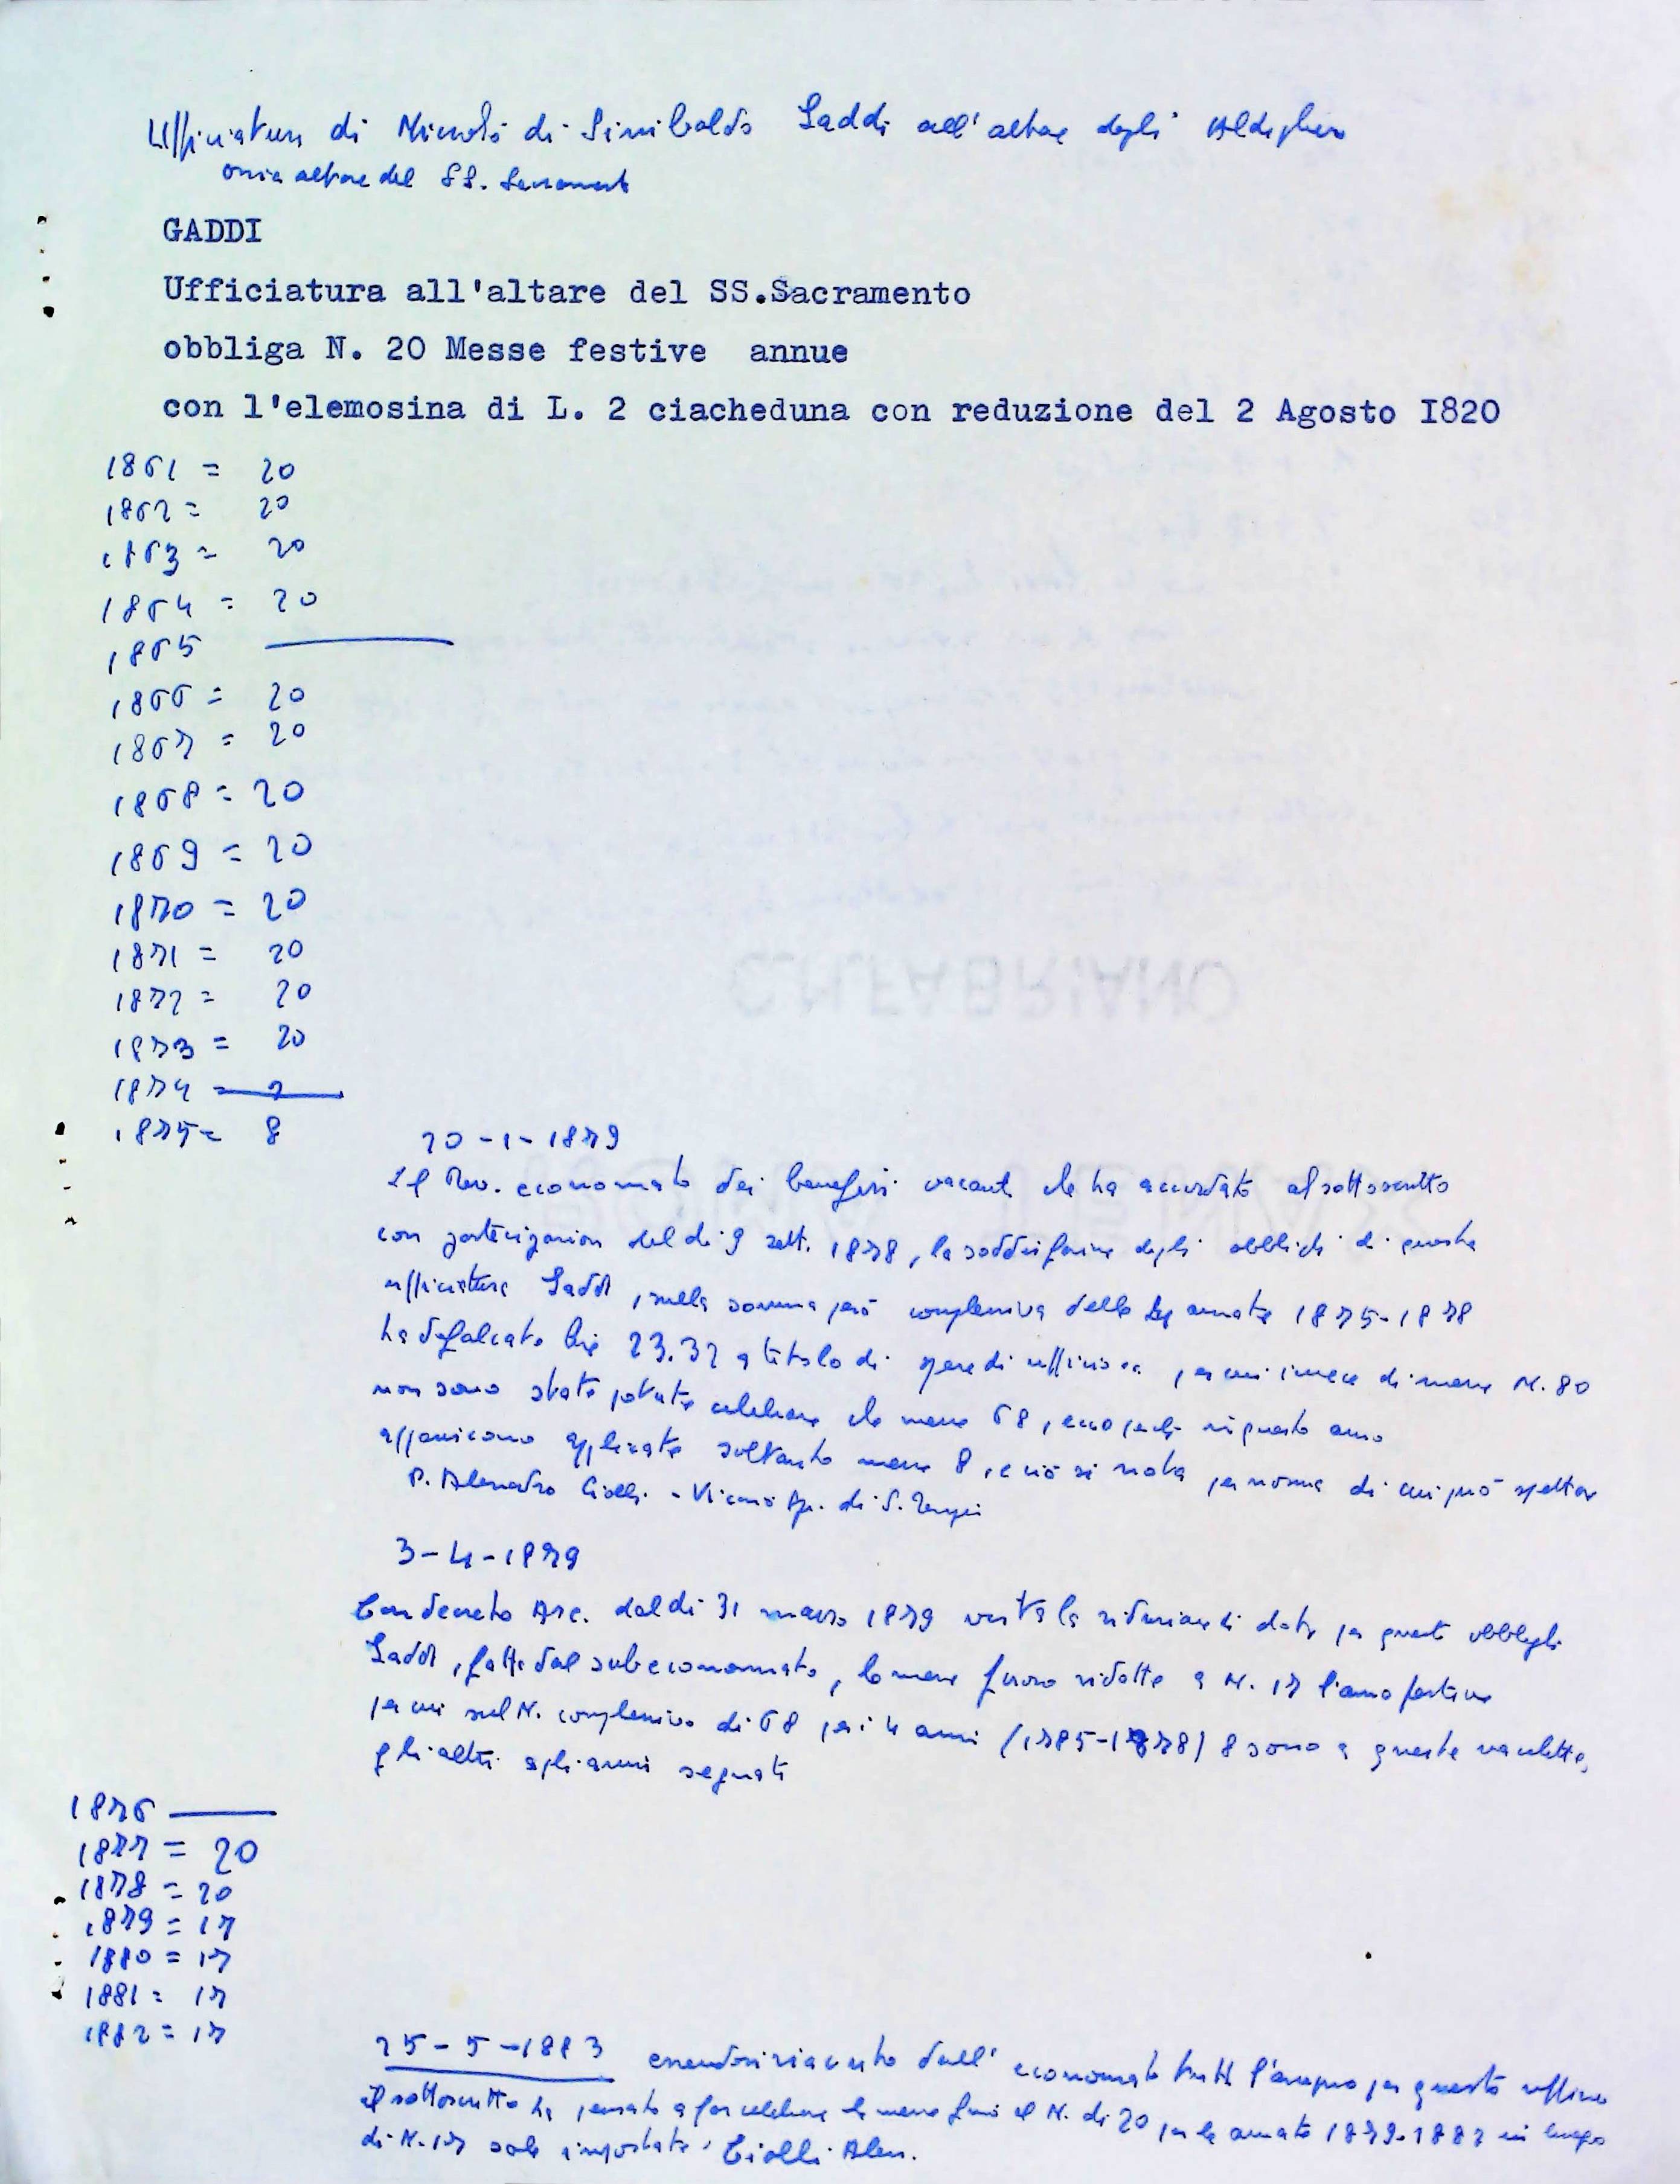 Ufficiatura di Niccolò di Sinibaldo Gaddi all'altare degli Aldighieri
ossia altare del SS. Sacramento
GADDI
Ufficiatura all'altare del SS.Sacramento
obbliga N. 20 Messe festive annue
con l'elemosina di L. 2 ciacheduna con reduzione del 2 Agosto I820
1861 = 20
1862 = 20
1863 = 20
1864 = 20
1865
1866 = 20
1867 = 20
1868 = 20
1869 = 20
1870 = 20
1871 = 20
1872 = 20
1873 = 20
1874 =
1875 = 8
20-1-1879
Il Rev. economato dei benefizi vacanti che ha accordato al sottoscritto
con partecipazion del dì 9 sett. 1878, la soddisfazione degli obblighi di questa
ufficiatura Gaddi, sulla somma però complessiva delle annate 1875-1878
ha defalcato lire 23.32 a titolo di spese di ufficio per cui invece di messe N. 80
non sono state potute celebrare che messe 68, ecco perché in questo anno
appariscono applicate soltanto messe 8, e ciò si nota per norma di cui può spettar
P. Alessandro Ciolli - Vicario di S.
3-4-1879
Con decreto Arc. del dì 31 marzo 1879 vista la riduzione di dote per questi obblighi
Gaddi, fatta dal subeconomato, le messe furon ridotte a N. 17 l'anno festive
per cui sul N. complessivo di 68 per i 4 anni (1785-1878) 8 sono a queste vacchette,
gli altri agli anni segnati
1876
1877 = 20
1878 = 20
1879 = 17
1880 = 17
1881 = 17
1882 = 17
25-5-1883 essendosi riavuto dall' economato tutti l'assegno per questo uffizio
il sottoscritto ha pensato a far celebrare le messe fino al N. di 20 per le annate 1879-1882 in luogo
di N. 17 sole impostate. Ciolli Aless.
C.M.FABRIANO